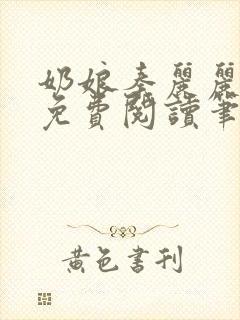 奶娘秦麗麗
免費閱讀筆
黃色書刊